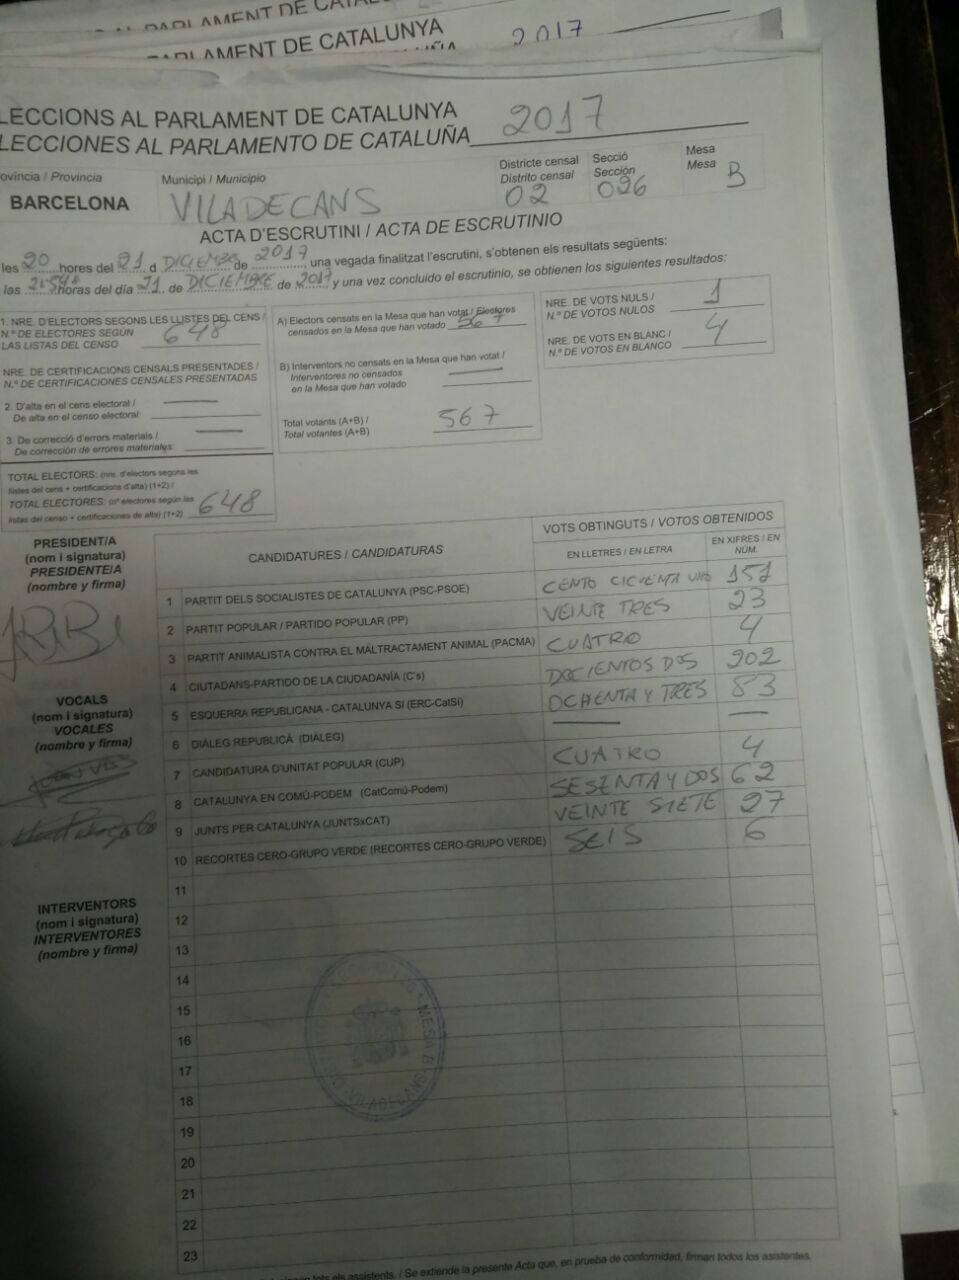 PARLAMENT DE CATALUNYA
PARLAMENT DE CATALUNYA 2017
LECCIONS AL PARLAMENT DE CATALUNYA
LECCIONES AL PARLAMENTO DE CATALUÑA 2017
ovíncia / Provincia
BARCELONA
Municipi / Municipio
VILADECANS
Districte censal
Distrito censal
02
Secció
Sección
026
Mesa
Mesa
B
ACTA D'ESCRUTINI / ACTA DE ESCRUTINIO
les 20 hores del 21 d DICIEMBRE de 2017, una vegada finalitzat l'escrutini, s'obtenen els resultats següents:
las horas del día 21 de DICIEMBRE de 2017 y una vez concluido el escrutinio, se obtienen los siguientes resultados:
1. NRE. D'ELECTORS SEGONS LES LLISTES DEL CENS /
N.º DE ELECTORES SEGÚN
LAS LISTAS DEL CENSO
648
NRE. DE CERTIFICACIONS CENSALS PRESENTADES /
N.º DE CERTIFICACIONES CENSALES PRESENTADAS
2. D'alta en el cens electoral /
De alta en el censo electoral:
3. De correcció d'errors materials /
De corrección de errores materiales:
TOTAL ELECTORS: (nre. d'electors segons les
llistes del cens + certificacions d'alta) (1+2) /
TOTAL ELECTORES: (nº electores según las
listas del censo + certificaciones de alta) (1+2) 648
A) Electors censats en la Mesa que han votat / Electores
censados en la Mesa que han votado 567
B) Interventors no censats en la Mesa que han votat /
Interventores no censados
en la Mesa que han votado
Total votants (A+B) /
Total votantes (A+B) 567
NRE. DE VOTS NULS /
N.º DE VOTOS NULOS 1
NRE. DE VOTS EN BLANC /
N.º DE VOTOS EN BLANCO 4
PRESIDENT/A
(nom i signatura)
PRESIDENTE/A
(nombre y firma)
VOCALS
(nom i signatura)
VOCALES
(nombre y firma)
INTERVENTORS
(nom i signatura)
INTERVENTORES
(nombre y firma)
CANDIDATURES / CANDIDATURAS
VOTS OBTINGUTS / VOTOS OBTENIDOS
EN LLETRES / EN LETRA
EN XIFRES / EN NÚM.
1 PARTIT DELS SOCIALISTES DE CATALUNYA (PSC-PSOE) CENTO CICUENTA UNO 151
2 PARTIT POPULAR / PARTIDO POPULAR (PP) VEINTE TRES 23
3 PARTIT ANIMALISTA CONTRA EL MALTRACTAMENT ANIMAL (PACMA) CUATRO 4
4 CIUTADANS-PARTIDO DE LA CIUDADANÍA (C's) DOCIENTOS DOS 202
5 ESQUERRA REPUBLICANA - CATALUNYA SÍ (ERC-CatSí) OCHENTA Y TRES 83
6 DIÀLEG REPUBLICÀ (DIÀLEG)
7 CANDIDATURA D'UNITAT POPULAR (CUP) CUATRO 4
8 CATALUNYA EN COMÚ-PODEM (CatComú-Podem) SESENTA Y DOS 62
9 JUNTS PER CATALUNYA (JUNTSxCAT) VEINTE SIETE 27
10 RECORTES CERO-GRUPO VERDE (RECORTES CERO-GRUPO VERDE) SEIS 6
11
12
13
14
15
16
17
18
19
20
21
22
23
MESA B
VILADECANS
tots els assistents. / Se extiende la presente Acta que, en prueba de conformidad, firman todos los asistentes.